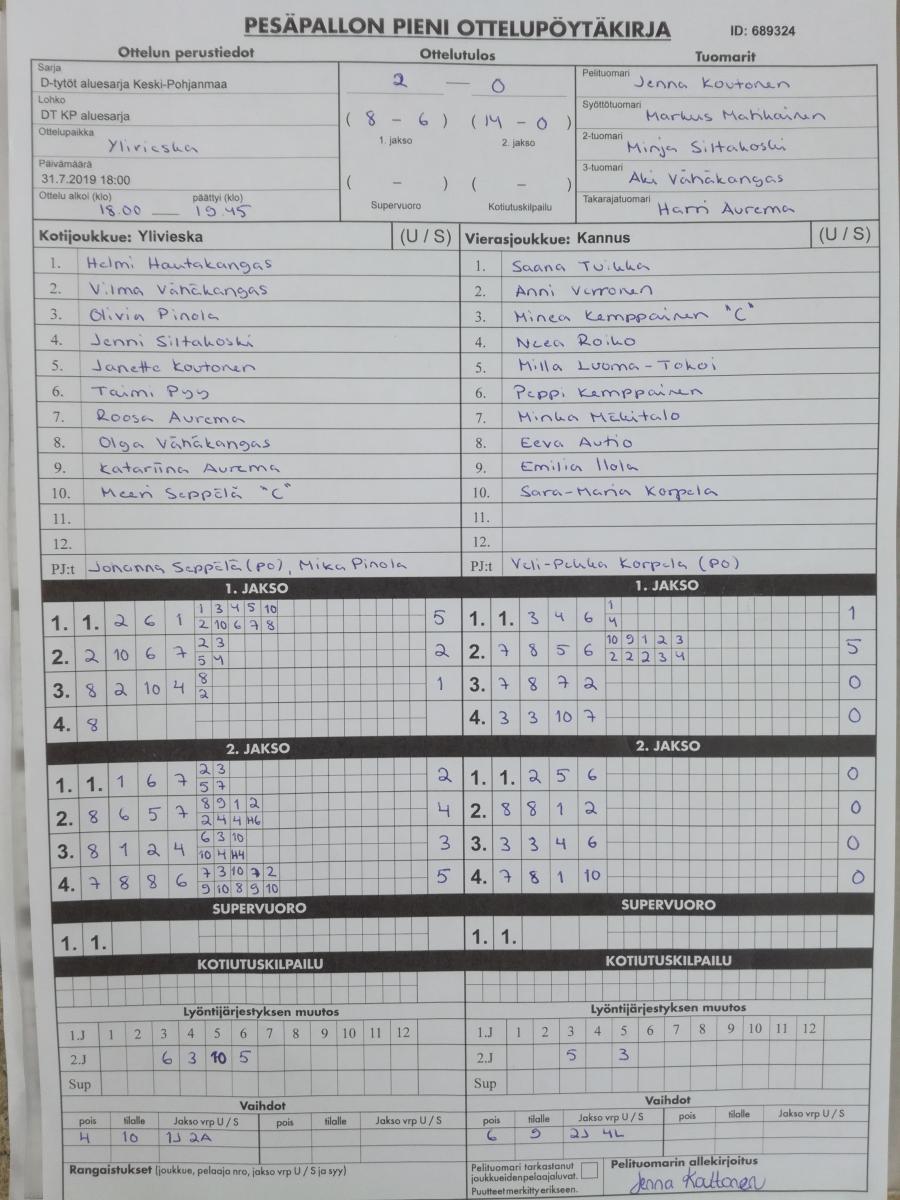 PESÄPALLON PIENI OTTELUPÖYTÄKIRJA ID: 689324
Ottelun perustiedot Ottelutulos Tuomarit
Sarja
D-tytöt aluesarja Keski-Pohjanmaa
Lohko
DT KP aluesarja
Ottelupaikka
Ylivieska
Päivämäärä
31.7.2019 18:00
Ottelu alkoi (klo) päättyi (klo)
18.00 — 19.45
2 — 0
( 8 - 6 ) ( 14 - 0 )
1. jakso 2. jakso
( - ) ( - )
Supervuoro Kotiutuskilpailu
Pelituomari Jenna Koutonen
Syöttötuomari Markus Matikainen
2-tuomari Minja Siltakoski
3-tuomari Aki Vähäkangas
Takarajatuomari Harri Aurema
Kotijoukkue: Ylivieska (U / S)
1. Helmi Hautakangas
2. Vilma Vähäkangas
3. Olivia Pinola
4. Jenni Siltakoski
5. Janette Koutonen
6. Taimi Pyy
7. Roosa Aurema
8. Olga Vähäkangas
9. Katariina Aurema
10. Meeri Seppälä "C"
11.
12.
PJ:t Johanna Seppälä (PO), Mika Pinola
Vierasjoukkue: Kannus (U / S)
1. Saana Tuikka
2. Anni Verronen
3. Minea Kemppainen "C"
4. Neea Roiko
5. Milla Luoma-Tokoi
6. Peppi Kemppainen
7. Minka Mäkitalo
8. Eeva Autio
9. Emilia Ilola
10. Sara-Maria Korpela
11.
12.
PJ:t Veli-Pekka Korpela (PO)
1. JAKSO
1. 1. 2 6 1 1 3 4 5 10 5
2 10 6 7 8
2. 2 10 6 7 2 3 2
5 4
3. 8 2 10 4 8 1
2
4. 8
1. JAKSO
1. 1. 3 4 6 1 1
4
2. 7 8 5 6 10 9 1 2 3 5
2 2 2 3 4
3. 7 8 7 2 0
4. 3 3 10 7 0
2. JAKSO
1. 1. 1 6 7 2 3 2
5 7
2. 8 6 5 7 8 9 1 2 4
2 4 4 H6
3. 8 1 2 4 6 3 10 3
10 4 H4
4. 7 8 8 6 7 3 10 7 2 5
9 10 8 9 10
2. JAKSO
1. 1. 2 5 6 0
2. 8 8 1 2 0
3. 3 3 4 6 0
4. 7 8 1 10 0
SUPERVUORO SUPERVUORO
1. 1. 1. 1.
KOTIUTUSKILPAILU KOTIUTUSKILPAILU
Lyöntijärjestyksen muutos
1.J 1 2 3 4 5 6 7 8 9 10 11 12
2.J 6 3 10 5
Sup
Vaihdot
pois tilalle Jakso vrp U / S pois tilalle Jakso vrp U / S
4 10 1J 2A
Rangaistukset (joukkue, pelaaja nro, jakso vrp U / S ja syy)
Lyöntijärjestyksen muutos
1.J 1 2 3 4 5 6 7 8 9 10 11 12
2.J 5 3
Sup
Vaihdot
pois tilalle Jakso vrp U / S pois tilalle Jakso vrp U / S
6 9 2J 4L
Pelituomari tarkastanut
joukkueidenpelaajaluvat.
Puutteet merkitty erikseen.
Pelituomarin allekirjoitus
Jenna Kouttonen